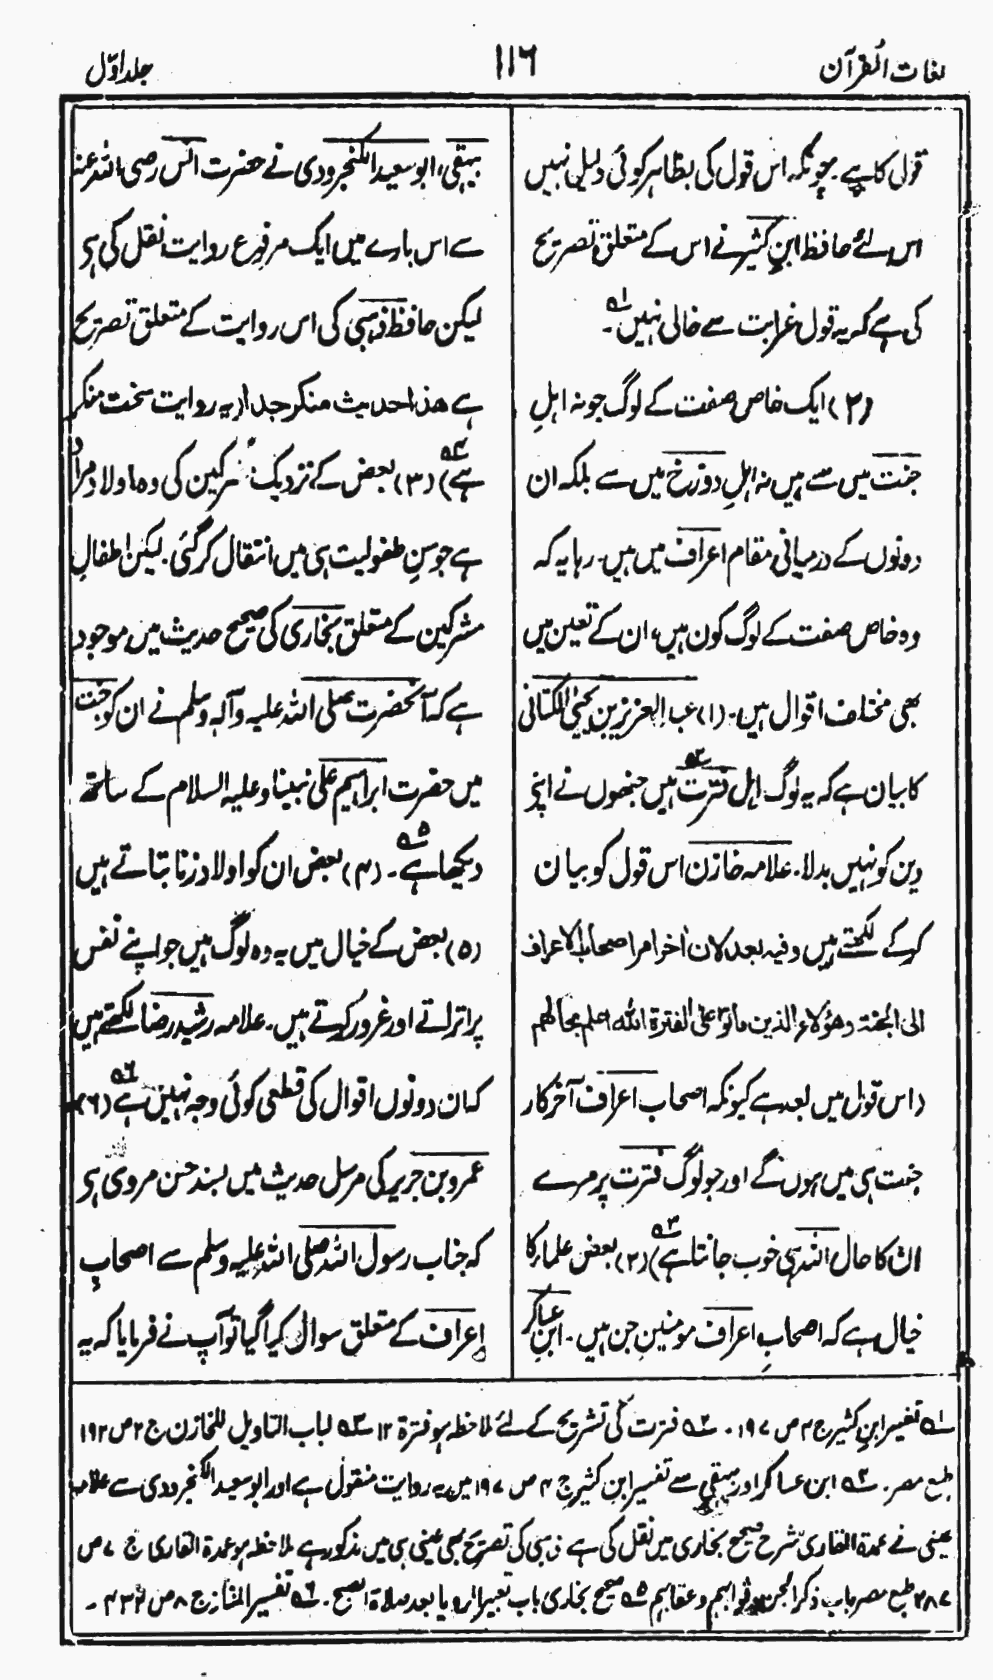 لغات القرآن
۱۱۶
جلد اوّل
قول کا ہے چونکہ اس قول کی بظاہر کوئی دلیل نہیں
اس لئے حافظ ابن کثیر نے اس کے متعلق تصریح
کی ہے کہ یہ قول غرابت سے خالی نہیں ؎۱۔
(۲) ایک خاص صفت کے لوگ جو نہ اہلِ
جنت میں سے ہیں نہ اہلِ دوزخ میں سے بلکہ ان
دونوں کے درمیانی مقام اعراف میں ہیں۔ رہا یہ کہ
وہ خاص صفت کے لوگ کون ہیں، ان کے تعین میں
بھی مختلف اقوال ہیں۔ (۱) عبد العزیز بن یحییٰ الکنانی
کا بیان ہے کہ یہ لوگ اہل فترت ؎۲ ہیں جنھوں نے اپنے
دین کو نہیں بدلا۔ علامہ خازن اس قول کو بیان
کر کے لکھتے ہیں وفیہ بعد لان اٰخر امر اصحاب الاعراف
الی الجنۃ وھؤلاء الذین ماتوا علی الفترۃ اللہ اعلم بحالھم
(اس قول میں بعد ہے کیونکہ اصحاب اعراف آخرکار
جنت ہی میں ہوں گے اور جو لوگ فترت پر مرے
ان کا حال اللہ ہی خوب جانتا ہے ؎۳) (۲) بعض علماء کا
خیال ہے کہ اصحابِ اعراف مومنین جن ہیں۔ ابن عساکر
بیہقی، ابو سعید الکنجرودی نے حضرت انس رضی اللہ عنہ
سے اس بارے میں ایک مرفوع روایت نقل کی ہی
لیکن حافظ ذہبی کی اس روایت کے متعلق تصریح
ہے ھذا حدیث منکر جدا (یہ روایت سخت منکر
ہے ؎۴) (۳) بعض کے نزدیک مشرکین کی وہ اولاد مراد
ہے جو سنِ طفولیت ہی میں انتقال کر گئی۔ لیکن اطفالِ
مشرکین کے متعلق بخاری کی صحیح حدیث میں موجود
ہے کہ آنحضرت صلی اللہ علیہ وآلہ وسلم نے ان کو جنت
میں حضرت ابراہیم علی نبینا وعلیہ السلام کے ساتھ
دیکھا ہے ؎۵۔ (۴) بعض ان کو اولاد زنا بتاتے ہیں
(۵) بعض کے خیال میں یہ وہ لوگ ہیں جو اپنے نفس
پر اتراتے اور غرور کرتے ہیں۔ علامہ رشید رضا لکھتے ہیں
کہ ان دونوں اقوال کی قطعی کوئی وجہ نہیں ہے ؎۶ (۶)
عمرو بن جریر کی مرسل حدیث میں بسند حسن مروی ہی
کہ جناب رسول اللہ صلی اللہ علیہ وسلم سے اصحابِ
اعراف کے متعلق سوال کیا گیا تو آپ نے فرمایا کہ یہ
؎۱ تفسیر ابن کثیر ج ۴ ص ۱۹۷۔ ؎۲ فترت کی تشریح کے لئے ملاحظہ ہو فترۃ ۱۲ ؎۳ لباب التاویل للخازن ج ۲ ص ۱۹۲
طبع مصر۔ ؎۴ ابن عساکر اور بیہقی سے تفسیر ابن کثیر ج ۴ ص ۱۹۷ میں یہ روایت منقول ہے اور ابو سعید الکنجرودی سے علامہ
عینی نے عمدۃ القاری شرح صحیح بخاری میں نقل کی ہے ذہبی کی تصریح بھی عینی ہی میں مذکور ہے ملاحظہ ہو عمدۃ القاری ج ۷ ص
۲۸۷ طبع مصر باب ذکر الجن وثوابہم وعقابہم ؎۵ صحیح بخاری باب تعبیر الرویا بعد صلاۃ الصبح۔ ؎۶ تفسیر المنار ج ۸ ص ۴۳۲۔